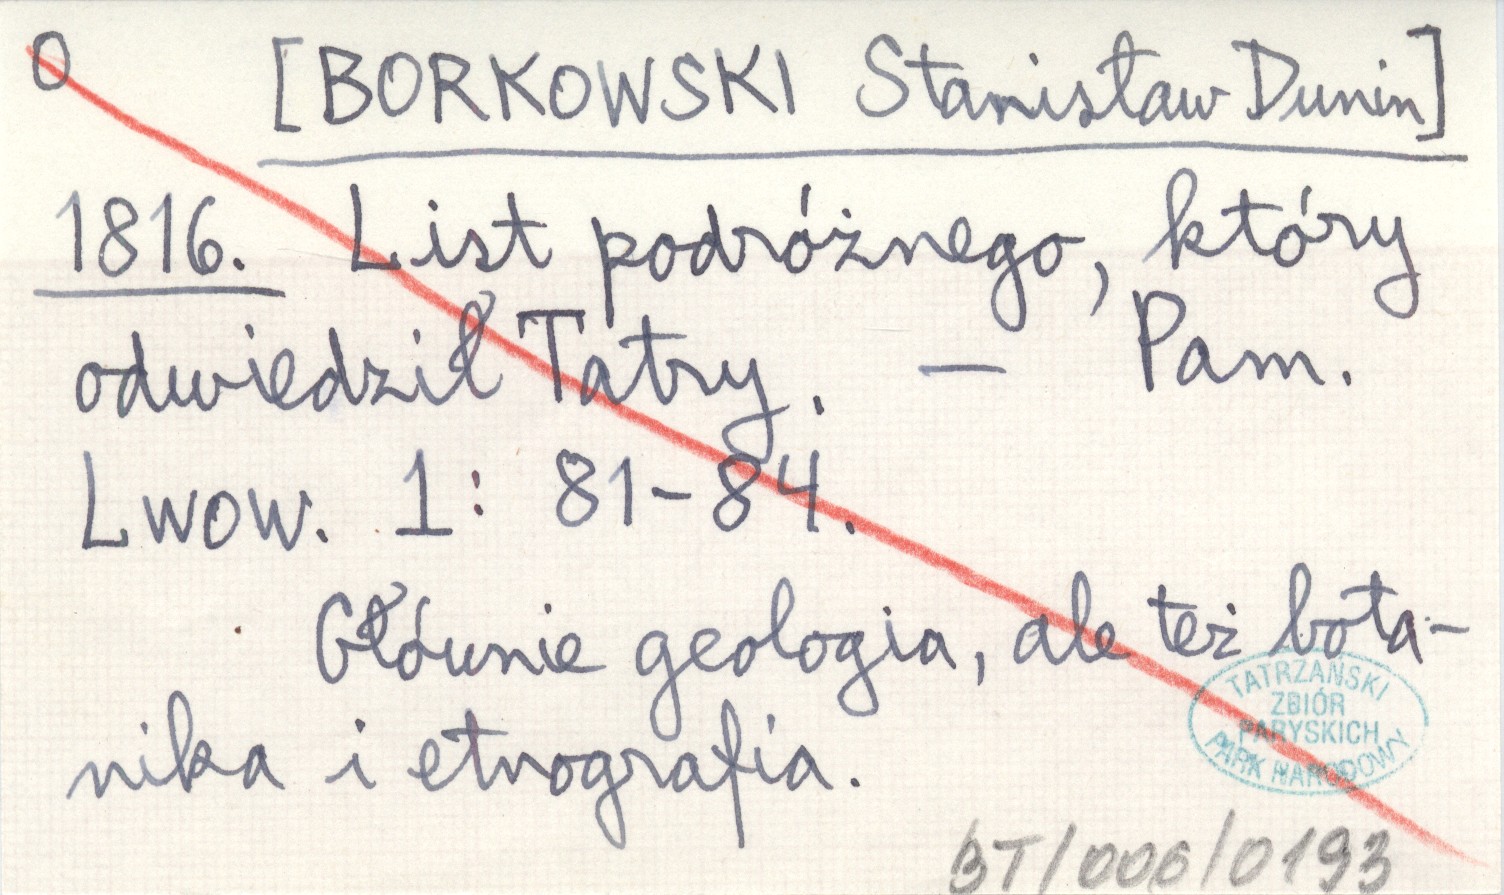 0 [BORKOWSKI Stanisław Dunin]
1816. List podróżnego, który
odwiedził Tatry. – Pam.
Lwow. 1: 81-84.
Głównie geologia, ale też bota-
nika i etnografia.
TATRZAŃSKI
ZBIÓR
PARYSKICH
PARK NARODOWY
BT/006/0193